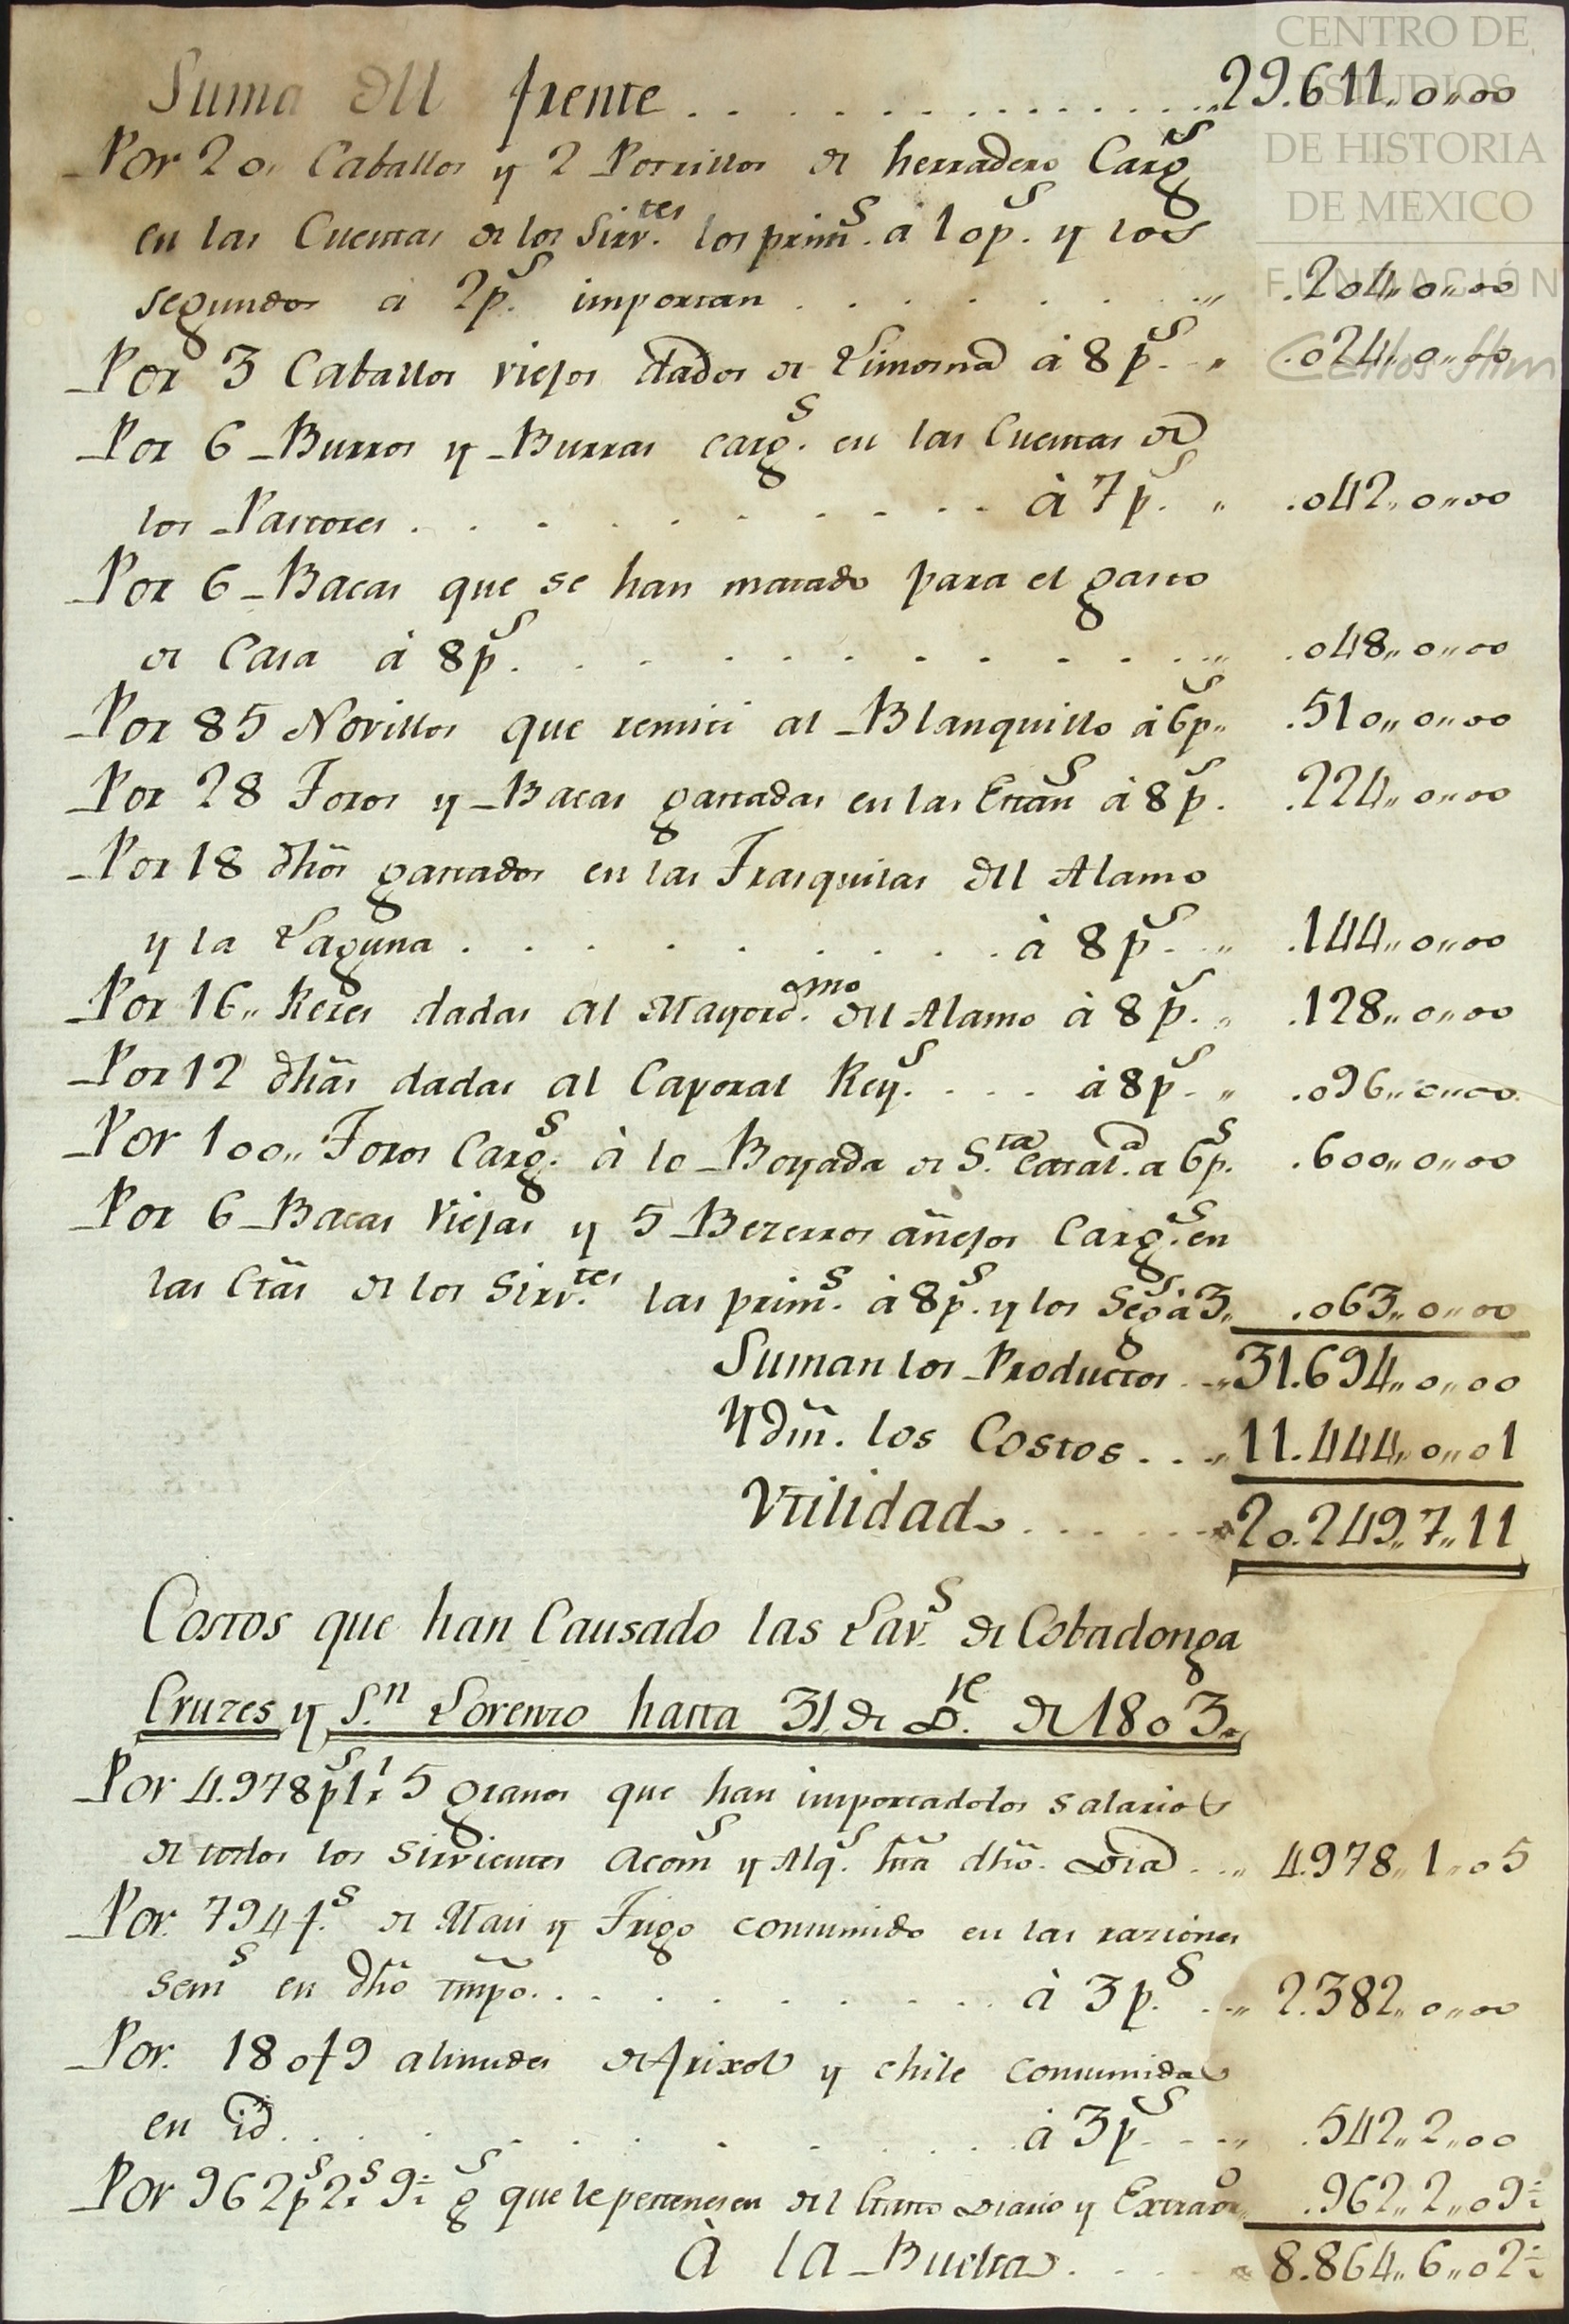 CENTRO DE
ESTUDIOS
DE HISTORIA
DE MEXICO
FUNDACIÓN
Carlos Slim
Suma dll frente . . . . . . . . . . . . 29.611,,0,,00
Por 20,, Caballos y 2 Potrillos de herradero Carg.s
en las Cuentas de los Sirv.tes los prim.s a 10p.s y los
segundos a 2p.s importan . . . . . . . . .204,,0,,00
Por 3 Caballos viejos dados de Limosna à 8p.s ,, .024,,0,,00
Por 6 Burros y Burras carg.s en las Cuentas de
los Pastores . . . . . . . . . . à 7p.s ,, .042,,0,,00
Por 6 Bacas que se han matado para el gasto
de Casa à 8p.s . . . . . . . . . . . .048,,0,,00
Por 85 Novillos que remiti al Blanquillo à 6p.s,, .510,,0,,00
Por 28 Toros y Bacas gastadas en las Estan.s à 8p.s .224,,0,,00
Por 18 dhos gastados en las Trasquilas dll Alamo
y la Laguna . . . . . . . . . à 8p.s ,, .144,,0,,00
Por 16,, Reses dadas al Mayord.omo dll Alamo à 8p.s ,, .128,,0,,00
Por 12 dhas dadas al Caporal Rey.s . . . à 8p.s ,, .096,,0,,00
Por 100,, Toros Carg.s à la Boyada de S.ta Catal.a a 6p.s .600,,0,,00
Por 6 Bacas Viejas y 5 Bezerros añejos Carg.s en
las Ctas de los Sirv.tes las prim.s à 8p.s y los Seg.s à 3,, .063,,0,,00
Suman los Productos . ,,31.694,,0,,00
Ydm. los Costos . . ,,11.444,,0,,01
Vtilidad . . . . . . 20.249,,7,,11
Costos que han Causado las Lav.s de Cobadonga
Cruzes y S.n Lorenzo hasta 31 de D.re de 1803,,
Por 4.978p.s 1r 5 granos que han importado los salarios
de todos los Sirvientes Acom.s y Alq.s hta dho. Dia . ,, 4.978,,1,,05
Por. 794 f.s de Mais y Trigo consumido en las raziones
sem.s en dho tmpo. . . . . . . . . à 3p.s . ,, 2.382,,0,,00
Por. 180 f 9 almudes de frixol y chile consumidas
en id. . . . . . . . . . à 3p.s . . ,, .542,,2,,00
Por 962p.s 2r.s 9½ g.s que le pertenesen del Gasto Diario y Extraor.o ,, .962,,2,,09½
À la Buelta . . . . . 8.864,,6,,02½